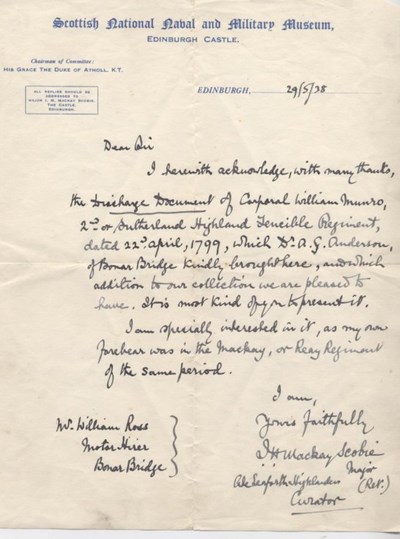 Scottish National Naval and Military Museum,
EDINBURGH CASTLE.
Chairman of Committee:
HIS GRACE THE DUKE OF ATHOLL, K.T.
ALL REPLIES SHOULD BE
ADDRESSED TO
MAJOR I. H. MACKAY SCOBIE,
THE CASTLE,
EDINBURGH.
EDINBURGH, 29/5/38
Dear Sir
I herewith acknowledge, with many thanks,
the Discharge Document of Corporal William Munro,
2nd or Sutherland Highland Fencible Regiment,
dated 22nd April, 1799, which Dr. A. G. Anderson,
of Bonar Bridge kindly brought here, and which
addition to our collection we are pleased to
have. It is most kind of you to present it.
I am specially interested in it, as my own
forebear was in the Mackay, or Reay Regiment
of the same period.
I am,
Yours faithfully
I H Mackay Scobie
Major
Seaforth Highlanders (Ret.)
Curator
Mr. William Ross
Motor Hirer
Bonar Bridge